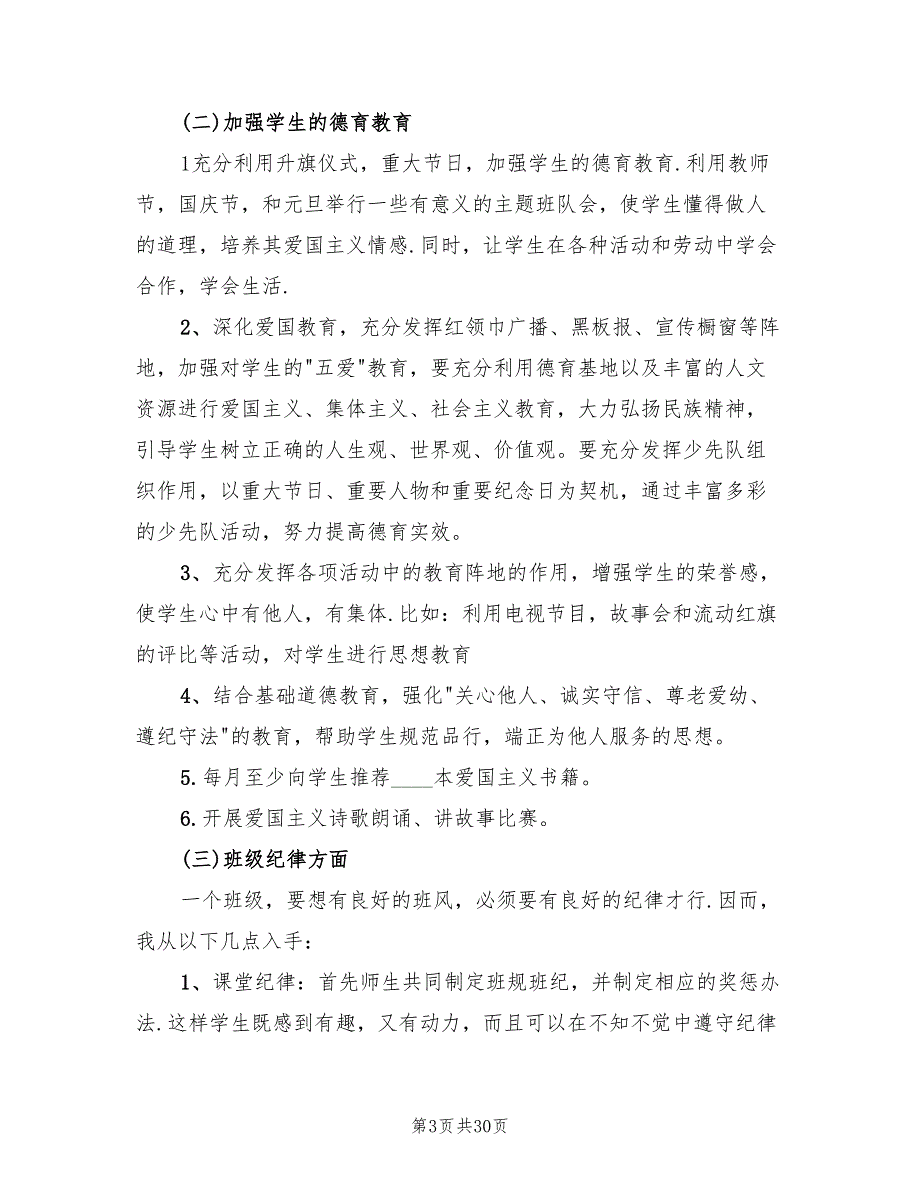 (二)加强学生的德育教育
1充分利用升旗仪式，重大节日，加强学生的德育教育.利用教师
节，国庆节，和元旦举行一些有意义的主题班队会，使学生懂得做人
的道理，培养其爱国主义情感.同时，让学生在各种活动和劳动中学会
合作，学会生活.
2、深化爱国教育，充分发挥红领巾广播、黑板报、宣传橱窗等阵
地，加强对学生的"五爱"教育，要充分利用德育基地以及丰富的人文
资源进行爱国主义、集体主义、社会主义教育，大力弘扬民族精神，
引导学生树立正确的人生观、世界观、价值观。要充分发挥少先队组
织作用，以重大节日、重要人物和重要纪念日为契机，通过丰富多彩
的少先队活动，努力提高德育实效。
3、充分发挥各项活动中的教育阵地的作用，增强学生的荣誉感，
使学生心中有他人，有集体.比如：利用电视节目，故事会和流动红旗
的评比等活动，对学生进行思想教育
4、结合基础道德教育，强化"关心他人、诚实守信、尊老爱幼、
遵纪守法"的教育，帮助学生规范品行，端正为他人服务的思想。
5.每月至少向学生推荐____本爱国主义书籍。
6.开展爱国主义诗歌朗诵、讲故事比赛。
(三)班级纪律方面
一个班级，要想有良好的班风，必须要有良好的纪律才行.因而，
我从以下几点入手：
1、课堂纪律：首先师生共同制定班规班纪，并制定相应的奖惩办
法.这样学生既感到有趣，又有动力，而且可以在不知不觉中遵守纪律
第3页共30页